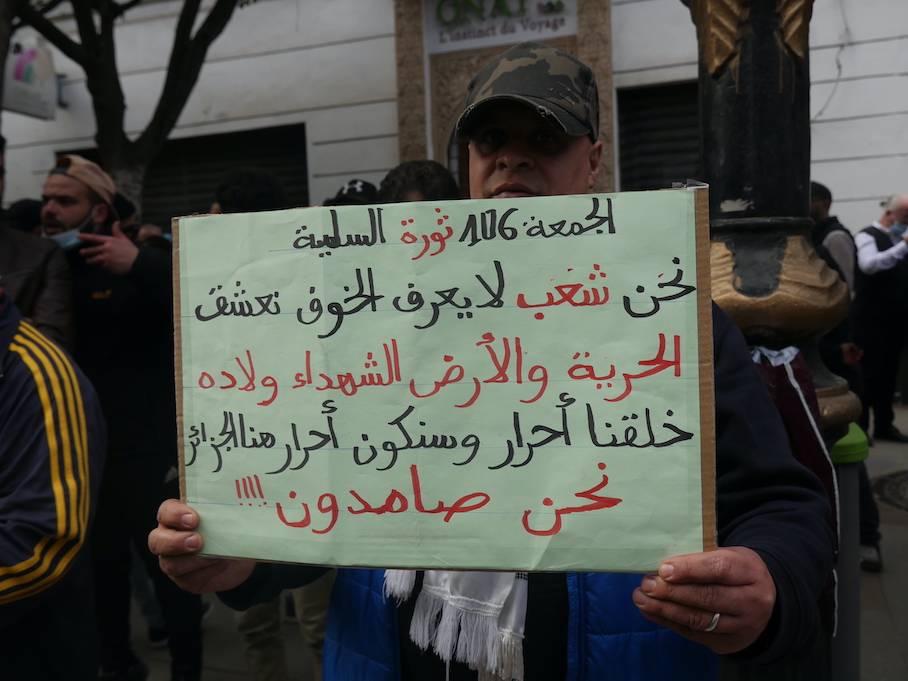 ONAT
L'instinct du Voyage
الجمعة 106 ثورة السلمية
نحن شعب لا يعرف الخوف نعشق
الحرية والأرض الشهداء ولاده
خلقنا أحرار وسنكون أحرار هنا الجزائر
نحن صامدون !!!!